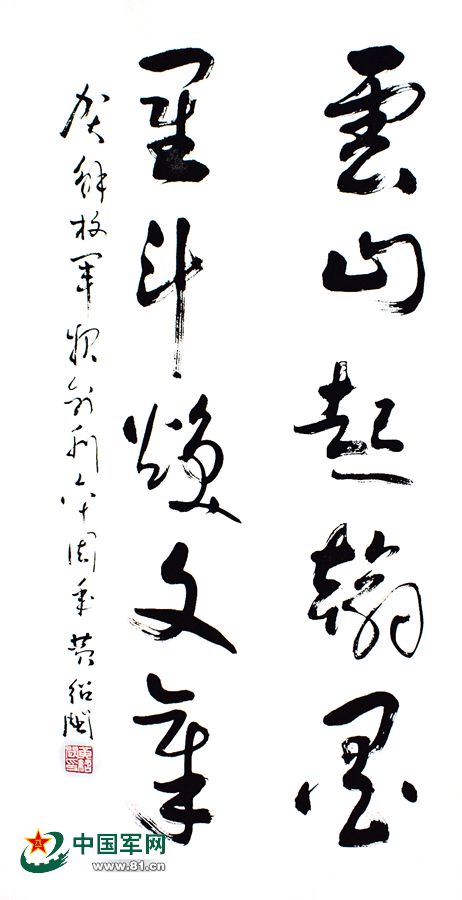 雲山起翰墨
星斗煥文章
贺解放军报创刊六十周年
中国军网
www.81.cn